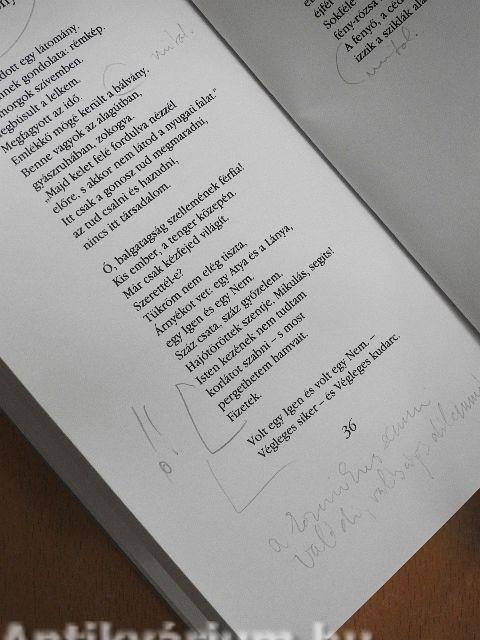 dott egy látomány.
nek gondolata: rémkép.
morgok szívemben.
egbúsult a lelkem.
Megfagyott az idő.
Emlékkő mögé került a bálvány.
Benne vagyok az alagútban,
gyászruhában, zokogva.
„Majd kelet felé fordulva nézzél
előre, s akkor nem látod a nyugati falat."
Itt csak a gonosz tud megmaradni,
az tud csalni és hazudni,
nincs itt társadalom.
Ó, balgatagság szellemének férfia!
Kis ember, a tenger közepén.
Már csak kézfejed világít.
Szerettél-e?
Tükröm nem elég tiszta,
Árnyékot vet: egy Atya és a Lánya,
egy Igen és egy Nem.
Száz csata, száz győzelem.
Hajótöröttek szentje, Mikulás, segíts!
Isten kezének nem tudtam
korlátot szabni – s most
pergethetem hamvait.
Fizetek.
Volt egy Igen és volt egy Nem. –
Végleges siker – és Végleges kudarc.
36
elfei
Sokféle
fény-rózsa
A fenyő, a ced
izzik a sziklák ala
Antikvárium.hu